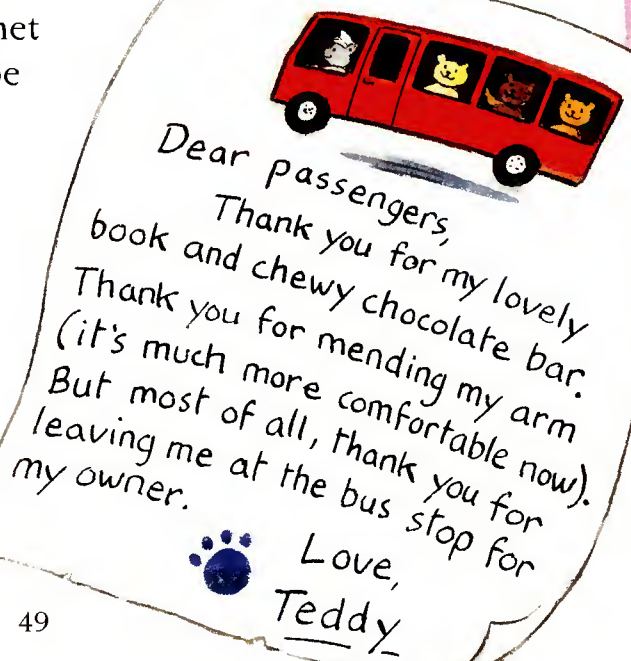 Dear passengers,
Thank you for my lovely
book and chewy chocolate bar.
Thank you for mending my arm
(it's much more comfortable now).
But most of all, thank you for
leaving me at the bus stop for
my owner.
Love,
Teddy
49